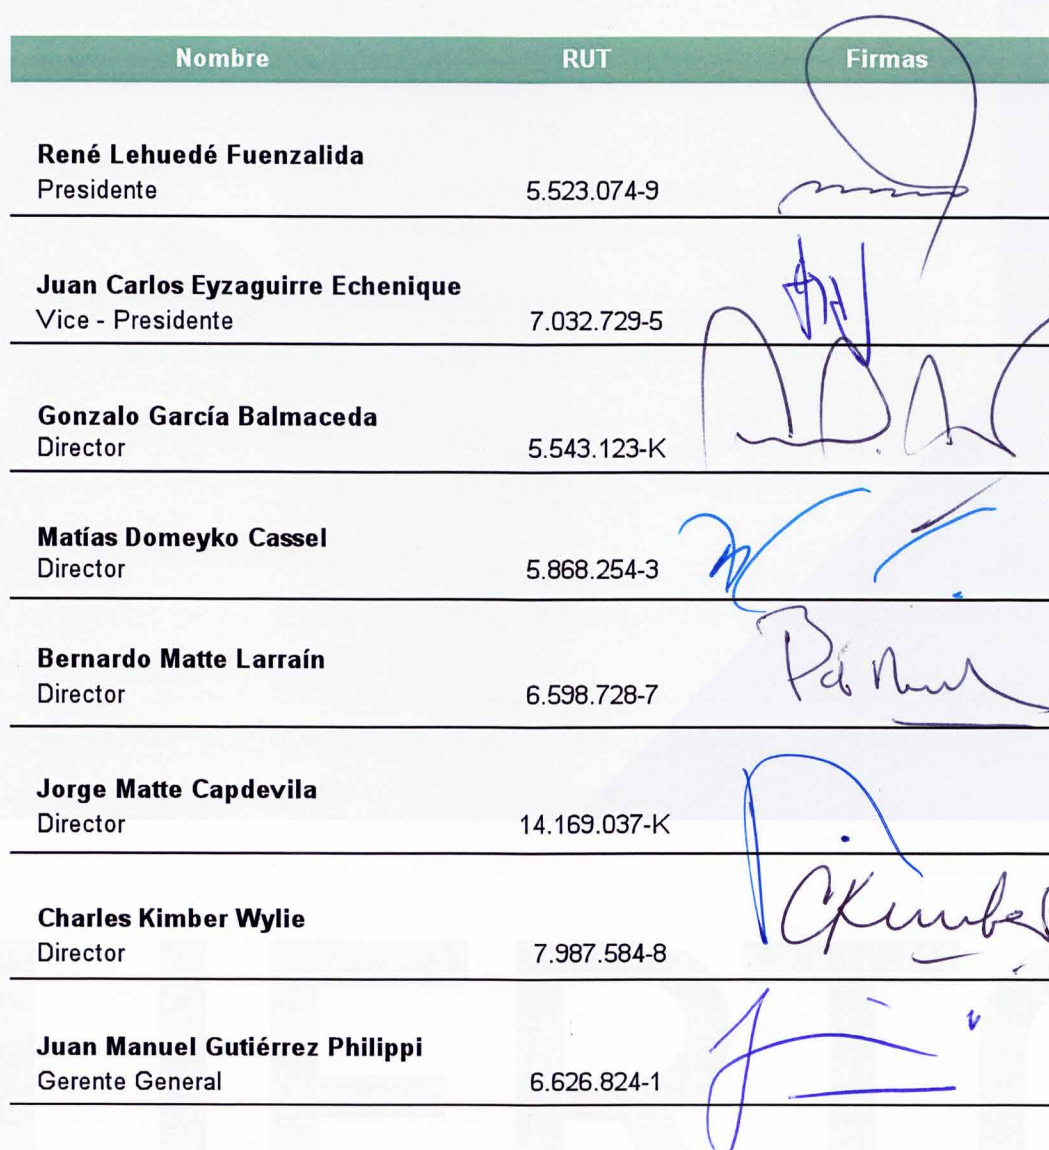 Nombre RUT Firmas
René Lehuedé Fuenzalida
Presidente 5.523.074-9
Juan Carlos Eyzaguirre Echenique
Vice - Presidente 7.032.729-5
Gonzalo García Balmaceda
Director 5.543.123-K
Matías Domeyko Cassel
Director 5.868.254-3
Bernardo Matte Larraín
Director 6.598.728-7
Jorge Matte Capdevila
Director 14.169.037-K
CKimber
Charles Kimber Wylie
Director 7.987.584-8
Juan Manuel Gutiérrez Philippi
Gerente General 6.626.824-1